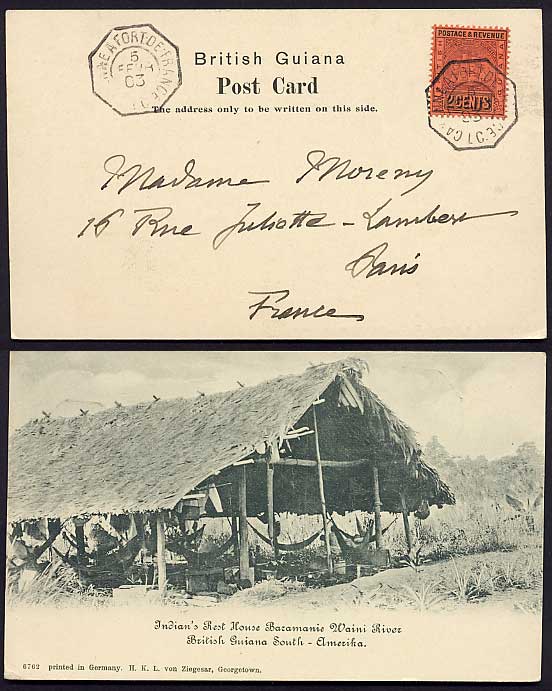 5
03
British Guiana
Post Card
The address only to be written on this side.
POSTAGE & REVENUE
2 CENTS
Madame Moreny
16 Rue Juliette-Lambert
Paris
France
Indian's Rest House Baramanie Waini River
British Guiana South - Amerika.
6762 printed in Germany. H. K. L. von Ziegesar, Georgetown.